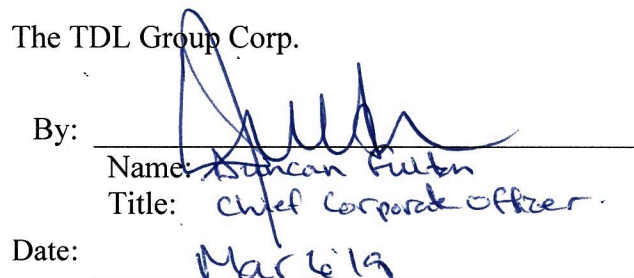 The TDL Group Corp.
By:
Name: Duncan Fulton
Title: Chief Corporate Officer.
Date: Mar 6'19